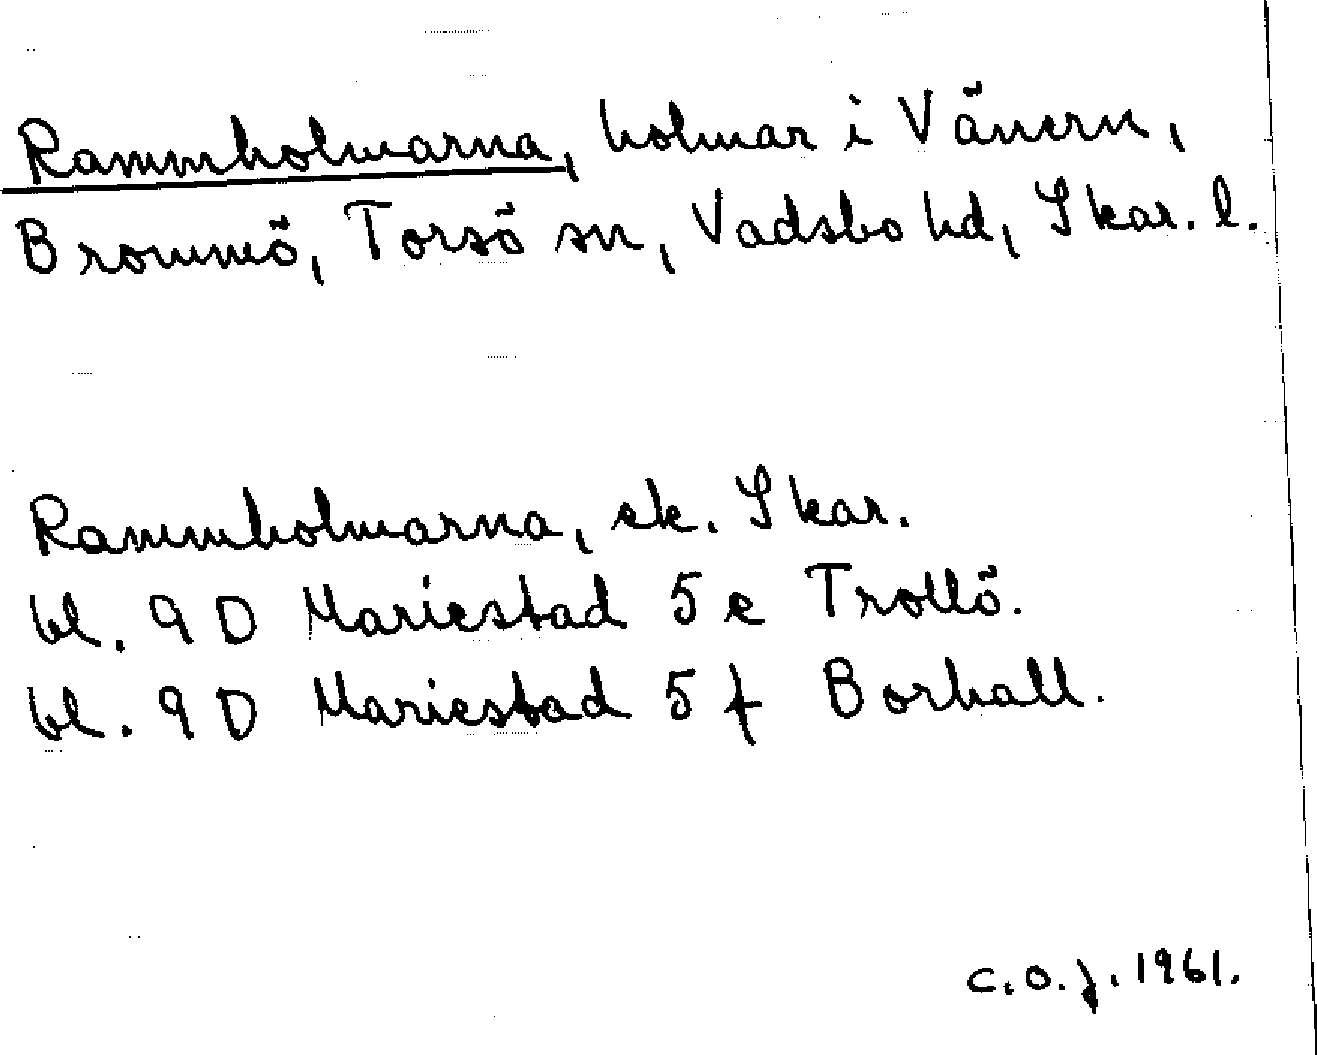 Rammholmarna, holmar i Vänern,
Brommö, Torsö sn, Vadsbo hd, Skar. l.
Rammholmarna, ek. Skar.
bl. 9 D Mariestad 5 e Trollö.
bl. 9 D Mariestad 5 f Borhall.
C. O. J. 1961.